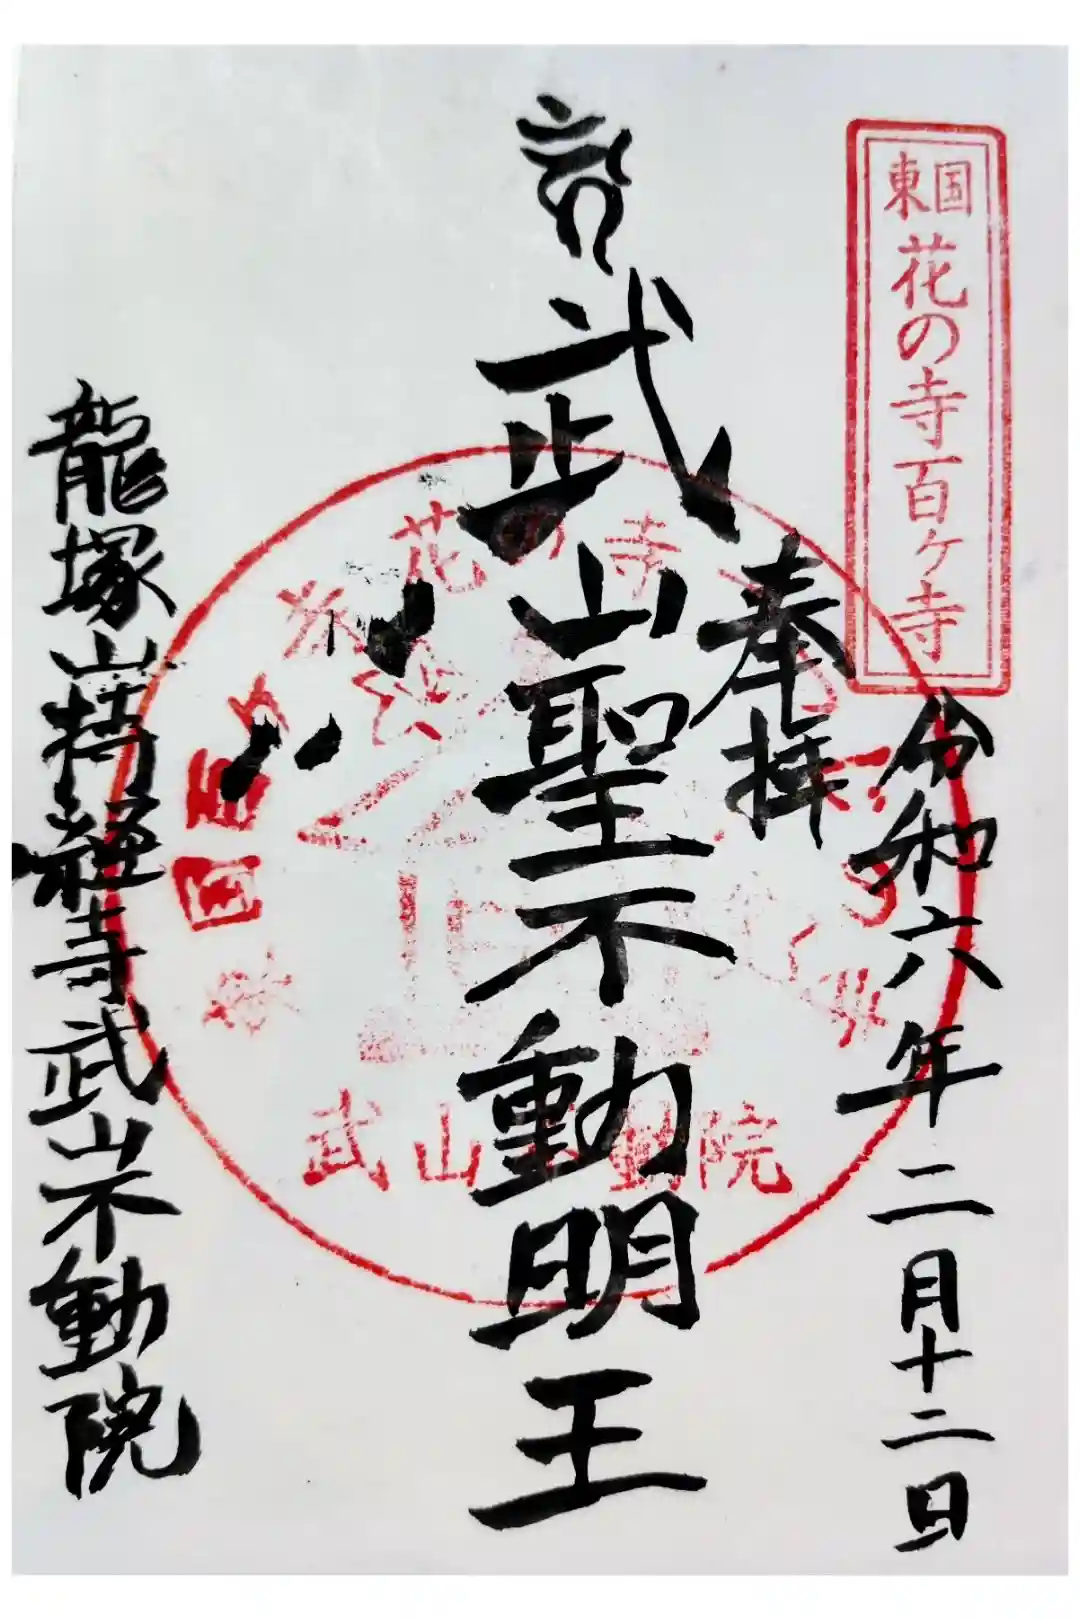 東国
花の寺百ヶ寺
令和六年二月十二日
奉拝
武山聖不動明王
花の寺
武山不動院
龍塚山持経寺武山不動院